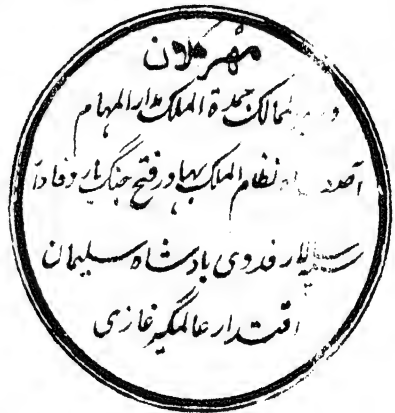 مهر کلان
الممالک جمدة الملک مدار المهام
نظام الملک بهادر فتح جنگ یار وفادار
سپه سالار فدوی بادشاه سلیمان
اقتدار عالمگیر غازی